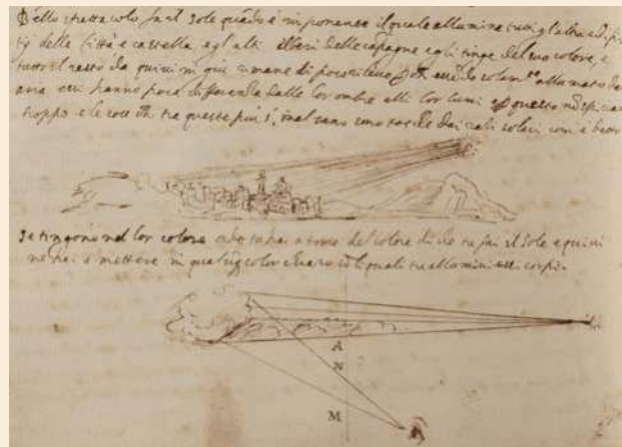 Bello spettacolo fa il sole quādo è in ponente il quale allumina tutti gl'altri edifi
tij delle Città e castella e gl'alti alberi delle campagne e gli tinge del suo colore, e
tutto il resto da quivi in giù rimane di poco rilievo essēdo solam.te alluminato da
aria essi hanno poca differenza dalle lor ombre alli lor lumi questo nō spiccan
troppo e le cose che tra queste più s'inalzano sono tocche dai rali solari com'è detto
Se tingono nel lor colore del colore di che tu fai il sole e quivi
ne hai a mettere in qualūq color chiaro cō il quali tu allumini essi corpi.
A
N
M